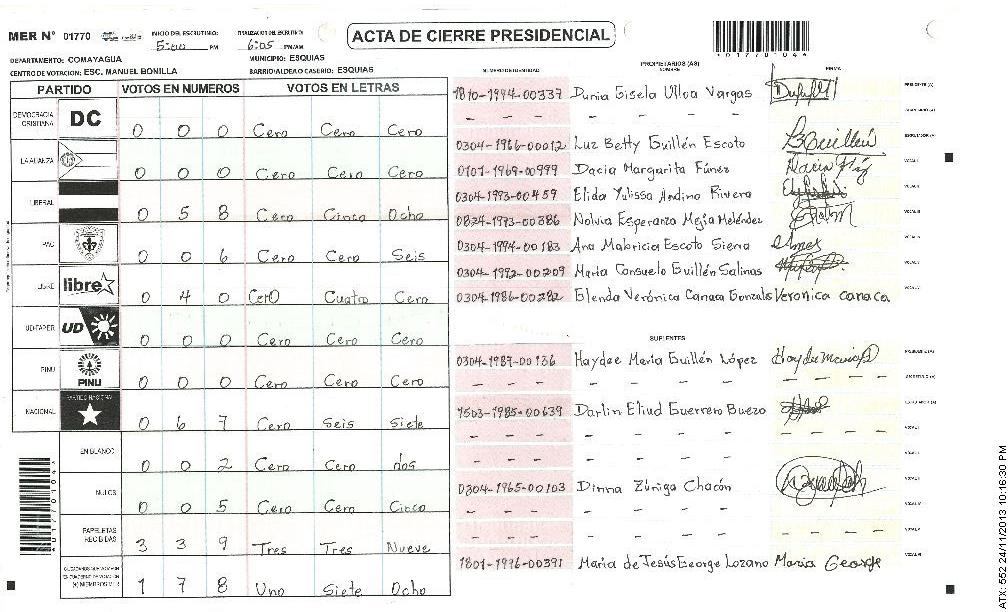 MER N° 01770
INICIO DEL ESCRUTINIO: 5:00 PM
6:05 PM/AM
ACTA DE CIERRE PRESIDENCIAL
DEPARTAMENTO: COMAYAGUA
MUNICIPIO: ESQUIAS
CENTRO DE VOTACION: ESC. MANUEL BONILLA
BARRIO/ALDEA O CASERIO: ESQUIAS
PARTIDO VOTOS EN NUMEROS VOTOS EN LETRAS
DEMOCRACIA CRISTIANA DC 0 0 0 Cero Cero Cero
LA ALIANZA 0 0 0 Cero Cero Cero
LIBERAL 0 5 8 Cero Cinco Ocho
PAC 0 0 6 Cero Cero Seis
LIBRE libre 0 4 0 Cero Cuatro Cero
UD/FAPER UD 0 0 0 Cero Cero Cero
PINU PINU 0 0 0 Cero Cero Cero
NACIONAL PARTIDO NACIONAL 0 6 7 Cero Seis Siete
EN BLANCO 0 0 2 Cero Cero dos
NULOS 0 0 5 Cero Cero Cinco
PAPELETAS RECIBIDAS 3 3 9 Tres Tres Nueve
1 7 8 Uno Siete Ocho
PROPIETARIOS (AS)
NUMERO DE IDENTIDAD NOMBRE FIRMA
1810-1994-00337 Dunia Gisela Ulloa Vargas PRESIDENTE (A)
- - - - - - - - -
0304-1966-00012 Luz Betty Guillén Escoto BGuillén ESCRUTADOR (A)
0101-1969-00999 Dacia Margarita Fúnez VOCAL I
0304-1993-00459 Elida Yulissa Andino Rivera
0824-1993-00386 Nolvia Esperanza Mejía Meléndez
0304-1994-00183 Ana Mabricia Escoto Sierra
0304-1992-00209 Marta Consuelo Guillén Salinas
0304-1986-00282 Glenda Verónica Canaca Gonzales Veronica canaca
SUPLENTES
0304-1987-00136 Haydee María Guillén López PRESIDENTE (A)
- - - - - - - - - -
1503-1985-00639 Darlin Eliud Guerrero Buezo
- - - - - - - - - -
- - - - - - - - - -
0304-1965-00103 Dinna Zúniga Chacón
- - - - - - - - - -
- - - - - - - - - -
1801-1996-00391 Maria de Jesús George Lozano Maria George
01770104
ATX: 552 24/11/2013 10:16:30 PM